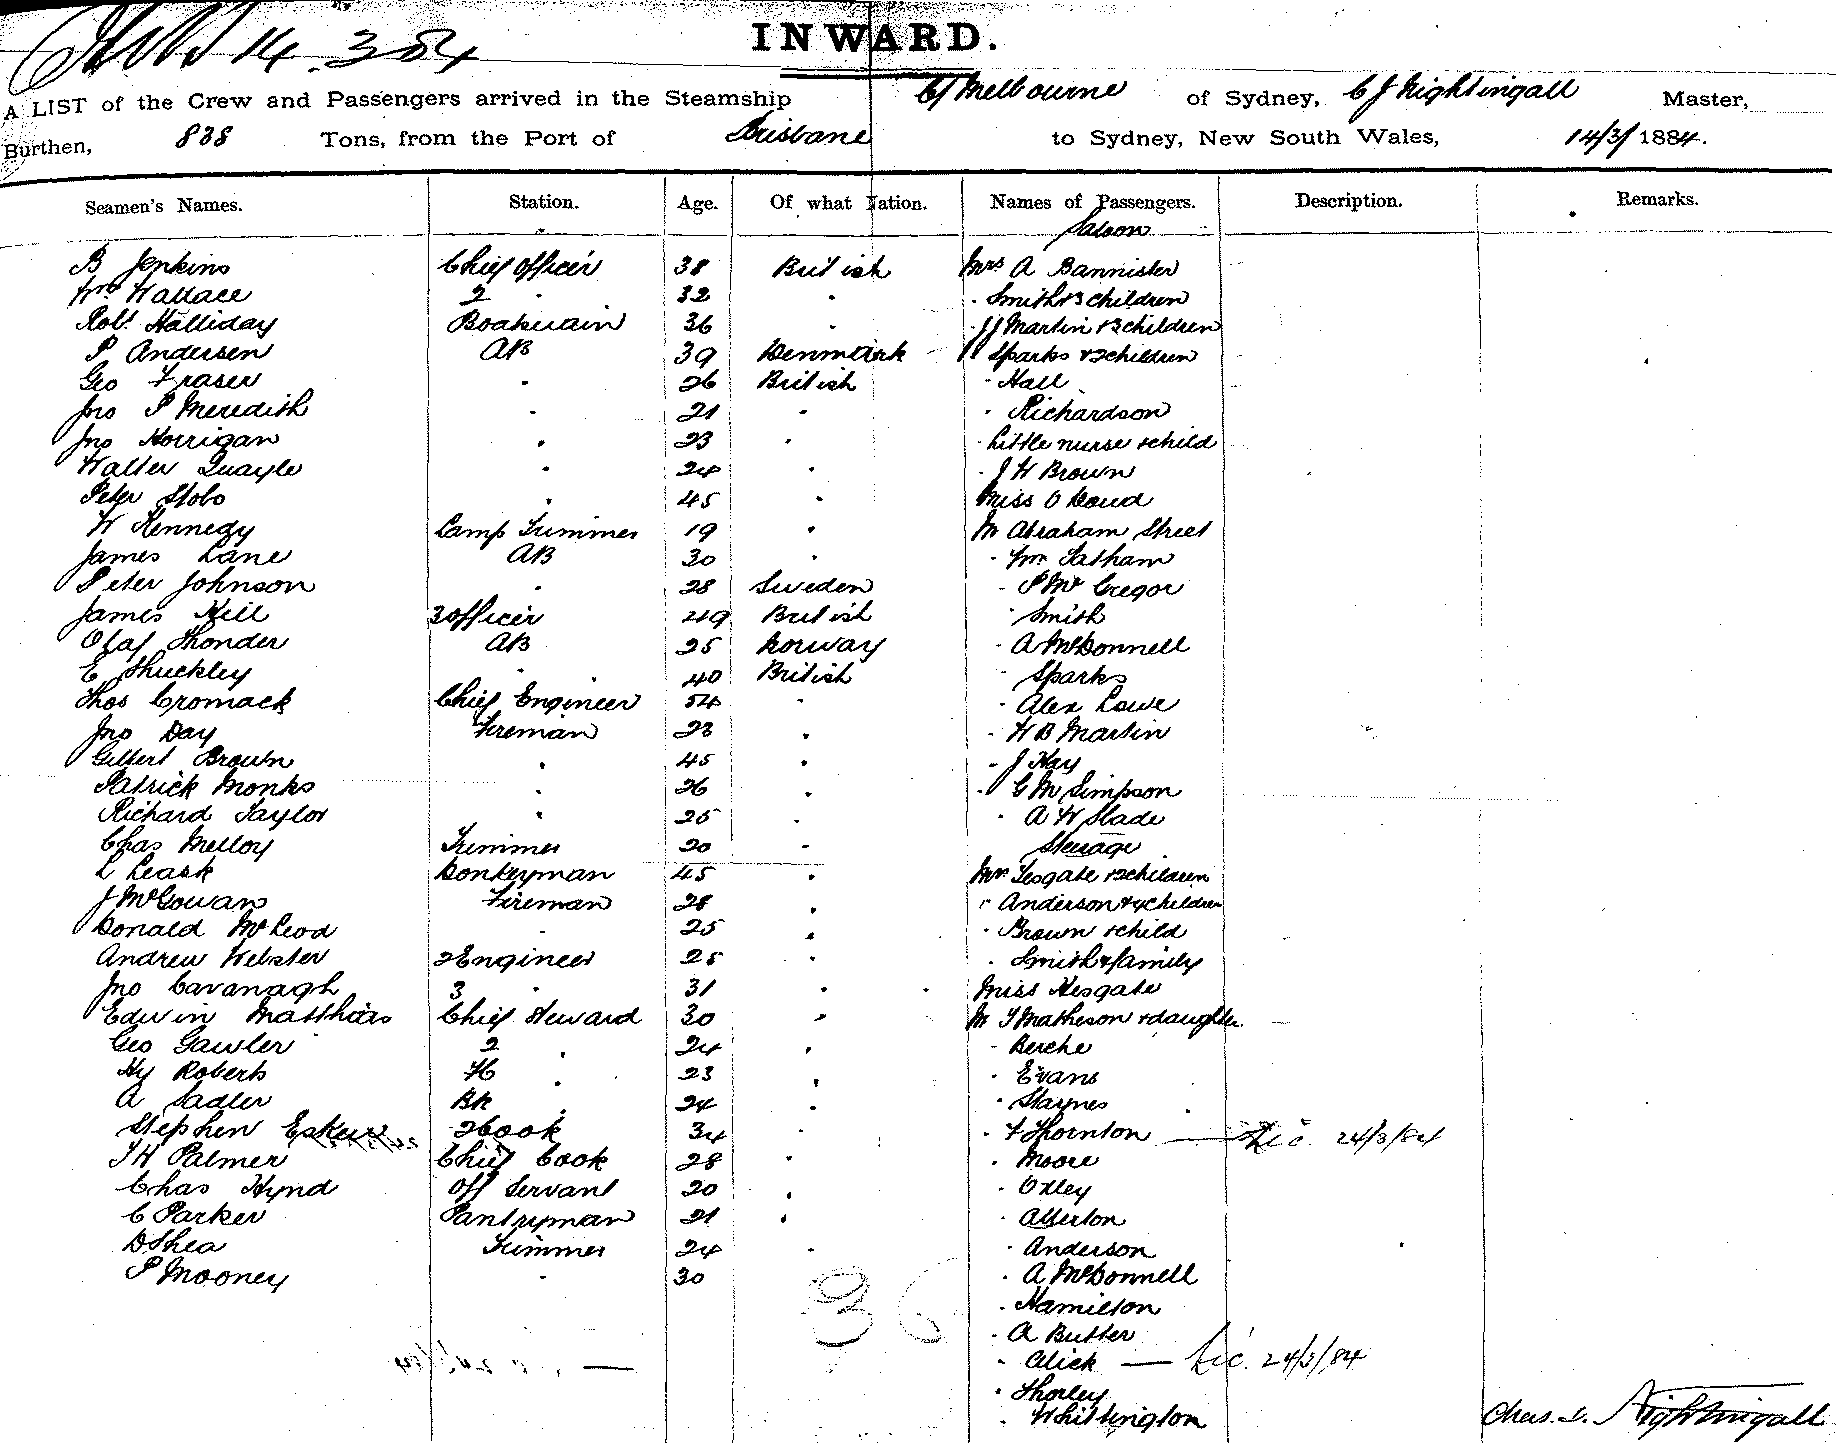 14.3.84
INWARD.
A LIST of the Crew and Passengers arrived in the Steamship C/ Melbourne of Sydney, C J Nightingall Master,
Burthen, 838 Tons, from the Port of Brisbane to Sydney, New South Wales, 14/3/1884.
Seamen's Names. Station. Age. Of what Nation. Names of Passengers. Description. Remarks.
Saloon
B Jenkins Chief Officer 38 British Mrs A Bannister
Wm Wallace 2 " 32 " " Smith & 3 children
Robt Halliday Boatswain 36 " " J J Martin & 3 children
P Andersen AB 39 Denmark " Sparks & 2 children
Geo Fraser " 26 British " Hall
Jno P Meredith " 21 " " Richardson
Jno Horrigan " 23 " " Little nurse & child
Walter Quayle " 24 " " J W Brown
Peter Stobo " 45 " Miss O Doud
W Kennedy Lamp Trimmer 19 " Mr Abraham Street
James Lane AB 30 " " Wm Latham
Peter Johnson " 28 Sweden " P McGregor
James Hill 3 Officer 49 British " Smith
Olaf Thonder AB 25 Norway " A McDonnell
E Shuckley " 40 British " Sparks
Thos Cromack Chief Engineer 54 " " Alex Lowe
Jno Day Fireman 23 " " W B Martin
Gilbert Brown " 45 " " J Hay
Patrick Monks " 26 " " G M Simpson
Richard Taylor " 25 " " A W Slade
Chas Melloy Trimmer 20 " Steerage
L Leask Donkeyman 45 " Mrs Lesgate & 2 children
J McGowan Fireman 28 " " Anderson & 4 children
Donald McLeod " 25 " " Brown & child
Andrew Webster 2 Engineer 25 " " Smith & family
Jno Cavanagh 3 " 31 " Miss Hesgate
Edwin Matthias Chief Steward 30 " Mr T Matheson & daughter
Geo Gawler 2 " 24 " " Berche
Hy Roberts 24 " 23 " " Evans
A Sadler BR " 24 " " Staynes
Stephen Eskew 2 Cook 34 " " F Thornton — Lic. 24/3/84
T H Palmer Chief Cook 28 " " Moore
Chas Hynd Off Servant 20 " " Oxley
C Parker Pantryman 21 " " Allerton
D Shea Trimmer 24 " " Anderson
P Mooney " 30 " A McDonnell
36
" Hamilton
" A Butler
" Alick — Lic. 24/3/84
" Thorley
" Whittington
Chas. J. Nightingall